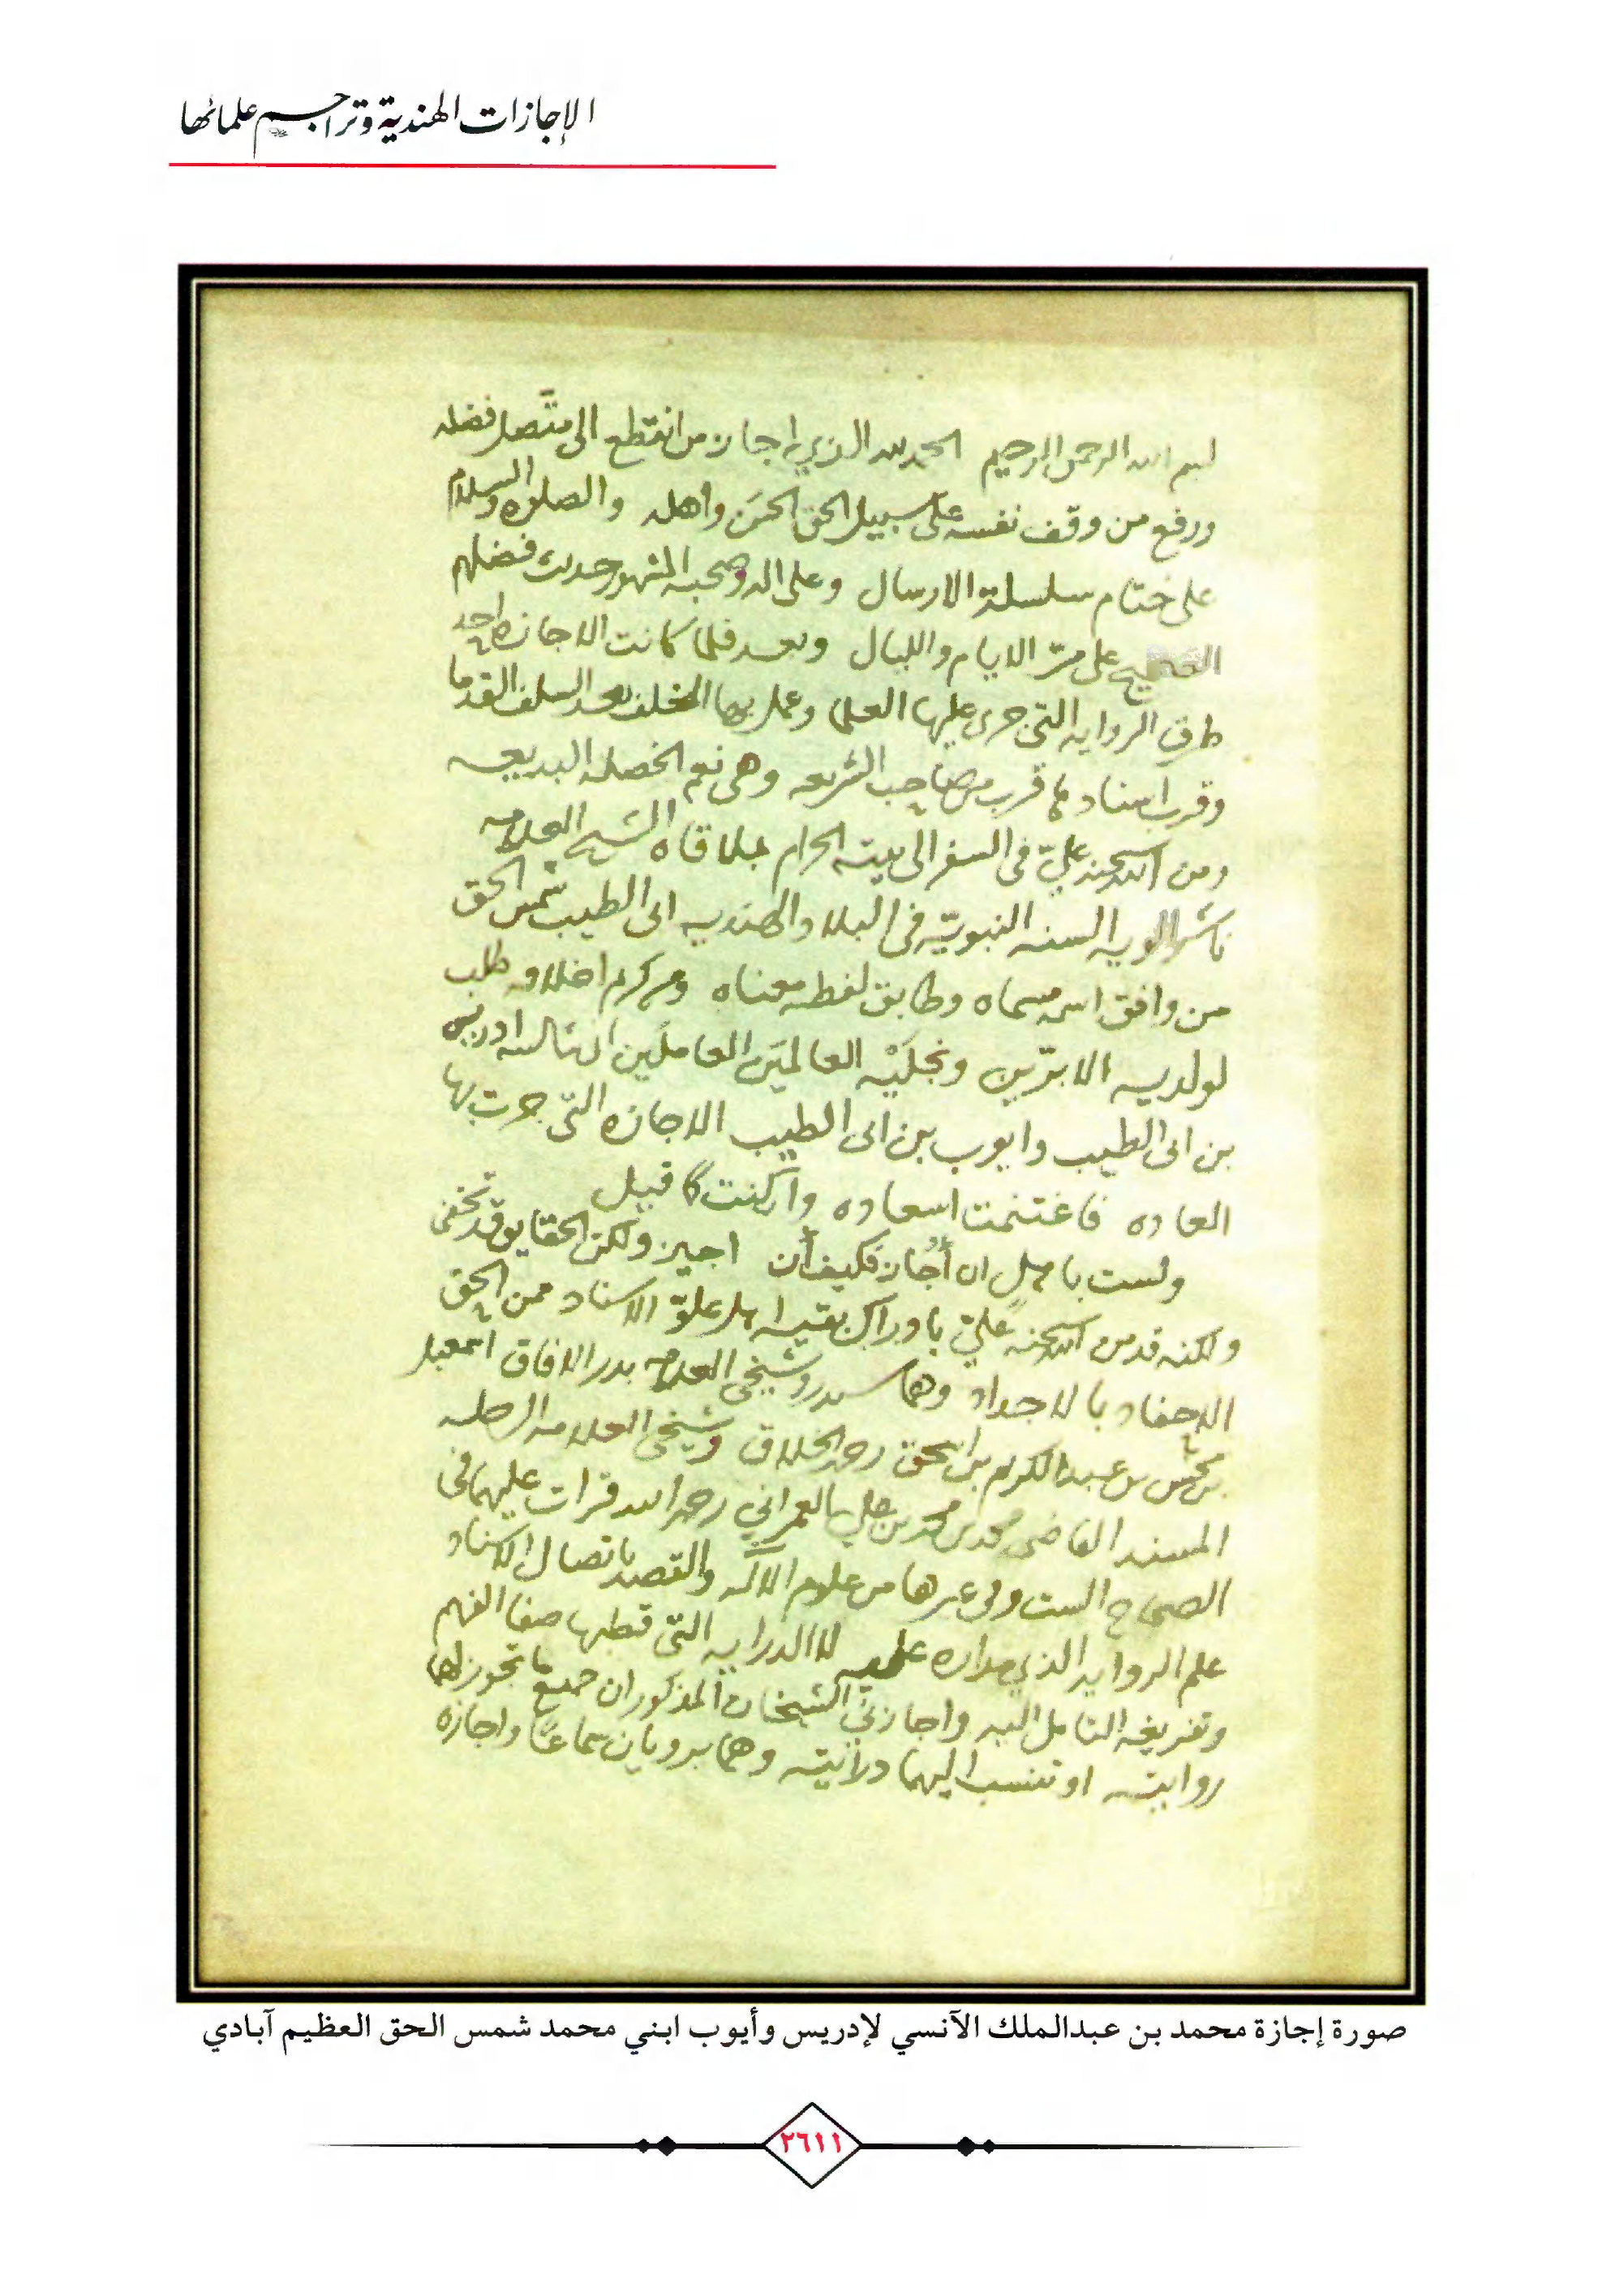 الإجازات الهندية وتراجم علمائها
بسم الله الرحمن الرحيم الحمد لله الذي اجاز من انقطع الى متّصل فضله
ورفع من وقف نفسه على سبيل الحق الحسَن واهله والصلوه والسلام
على ختام سلسلة الارسال وعلى اله وصحبه المشهور حديث فضلهم
الصحيح على مرّ الايام والليال وبعد فلما كانت الاجازه احد
طرق الروايه التي جرى عليها العلما وعمل بها الخلف بعد السلف القدما
وقرب اسناد لما قرب من صاحب الشريعه وهي نعم الخصله البديعه
ومن الله سبحنه عليّ في السفر الى بيته الحرام بملاقاه الشيخ العلامه
ناشر الويه السنه النبويّه في البلاد الهنديه ابى الطيب شمس الحق
من وافق اسمه مسماه وطابق لفظه معناه ومن كرم اخلاقه طلب
لولديه الابرّين ونجليْه العالميَن العاملَين ادريس
بن ابى الطيب وايوب بن ابى الطيب الاجازه التي جرت بها
العاده فاغتنمت اسعاده وان كنت كما قيل
ولست باهل ان أُجاز فكيف أن اجيز ولكن الحقايق قد تخفى
ولكنه قد من الله سبحنه عليّ بادراك بقيه اهل علوّ الاسناد ممن الحق
الاحفاد بالاجداد وهما شيخي العلامه بدر الافاق اسمعيل
بن محسن بن عبد الكريم بن اسحق رحمه الخلاق وشيخي العلامه الرحله
المسند القاضي محمد بن محمد بن علي العمراني رحمه الله قرات عليهما في
الصحاح الست وفي غيرها من علوم الآله والقصد باتصال الاسناد
علم الروايه الذي مداره عليه لا الدرايه التي قطبها صفا الفهم
وتفريغه التامل اليه واجازني الشيخان المذكوران جميع ما تجوز لهما
روايته او تنسب اليهما درايته وهما يرويان سماعًا واجازه
صورة إجازة محمد بن عبدالملك الآنسي لإدريس وأيوب ابني محمد شمس الحق العظيم آبادي
٢٦١١